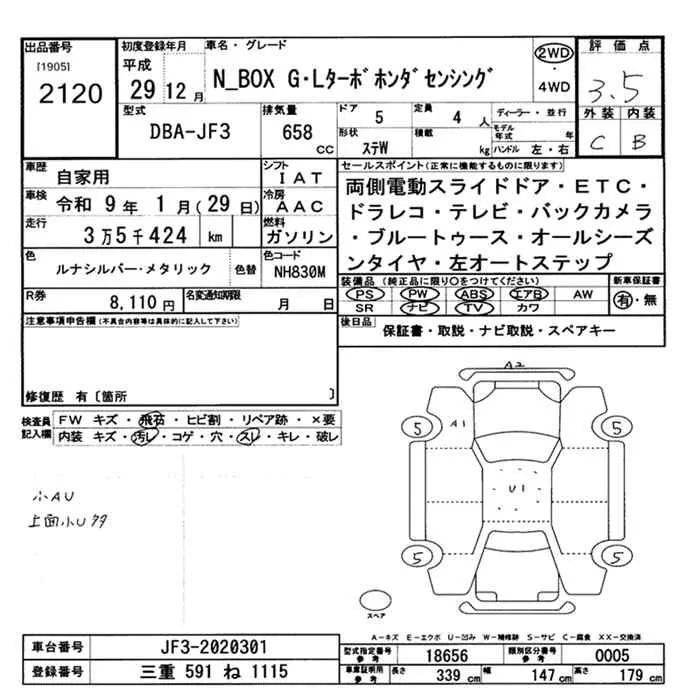 出品番号
[1905]
2120
初度登録年月
平成
29 12 月
車名・グレード
N_BOX G・Lターボホンダセンシング
2WD
・
4WD
評価点
3.5
外装 内装
C B
型式
DBA-JF3
排気量
658 cc
ドア
5
定員
4 人
ディーラー・並行
形状
ステW
積載
kg
モデル年式
年
ハンドル 左・右
車歴
自家用
シフト
IAT
車検
令和 9 年 1 月(29 日)
冷房
AAC
走行
3万5千424 km
燃料
ガソリン
色
ルナシルバー・メタリック
色替
色コード
NH830M
R券
8,110 円
名変通知期限
月 日
セールスポイント(正常に機能するものに限ります)
両側電動スライドドア・ETC・
ドラレコ・テレビ・バックカメラ
・ブルートゥース・オールシーズ
ンタイヤ・左オートステップ
装備品(純正品に限り○をつけてください)
PS PW ABS エアB AW
SR ナビ TV カワ
新車保証書
有・無
後日品
保証書・取説・ナビ取説・スペアキー
注意事項申告欄(不具合内容等は具体的に記入して下さい)
修復歴 有〔箇所 〕
検査員記入欄
FW キズ・飛石・ヒビ割・リペア跡・×要
内装 キズ・汚レ・コゲ・穴・スレ・キレ・破レ
小AU
上面小U
A2
A1
5
5
U1
5
5
スペア
A-キズ E-エクボ U-凹み W-補修跡 S-サビ C-腐食 XX-交換済
車台番号
JF3-2020301
登録番号
三重 591 ね 1115
型式指定番号
参考
18656
類別区分番号
参考
0005
車庫証明用
参考
長さ
339 cm
幅
147 cm
高さ
179 cm